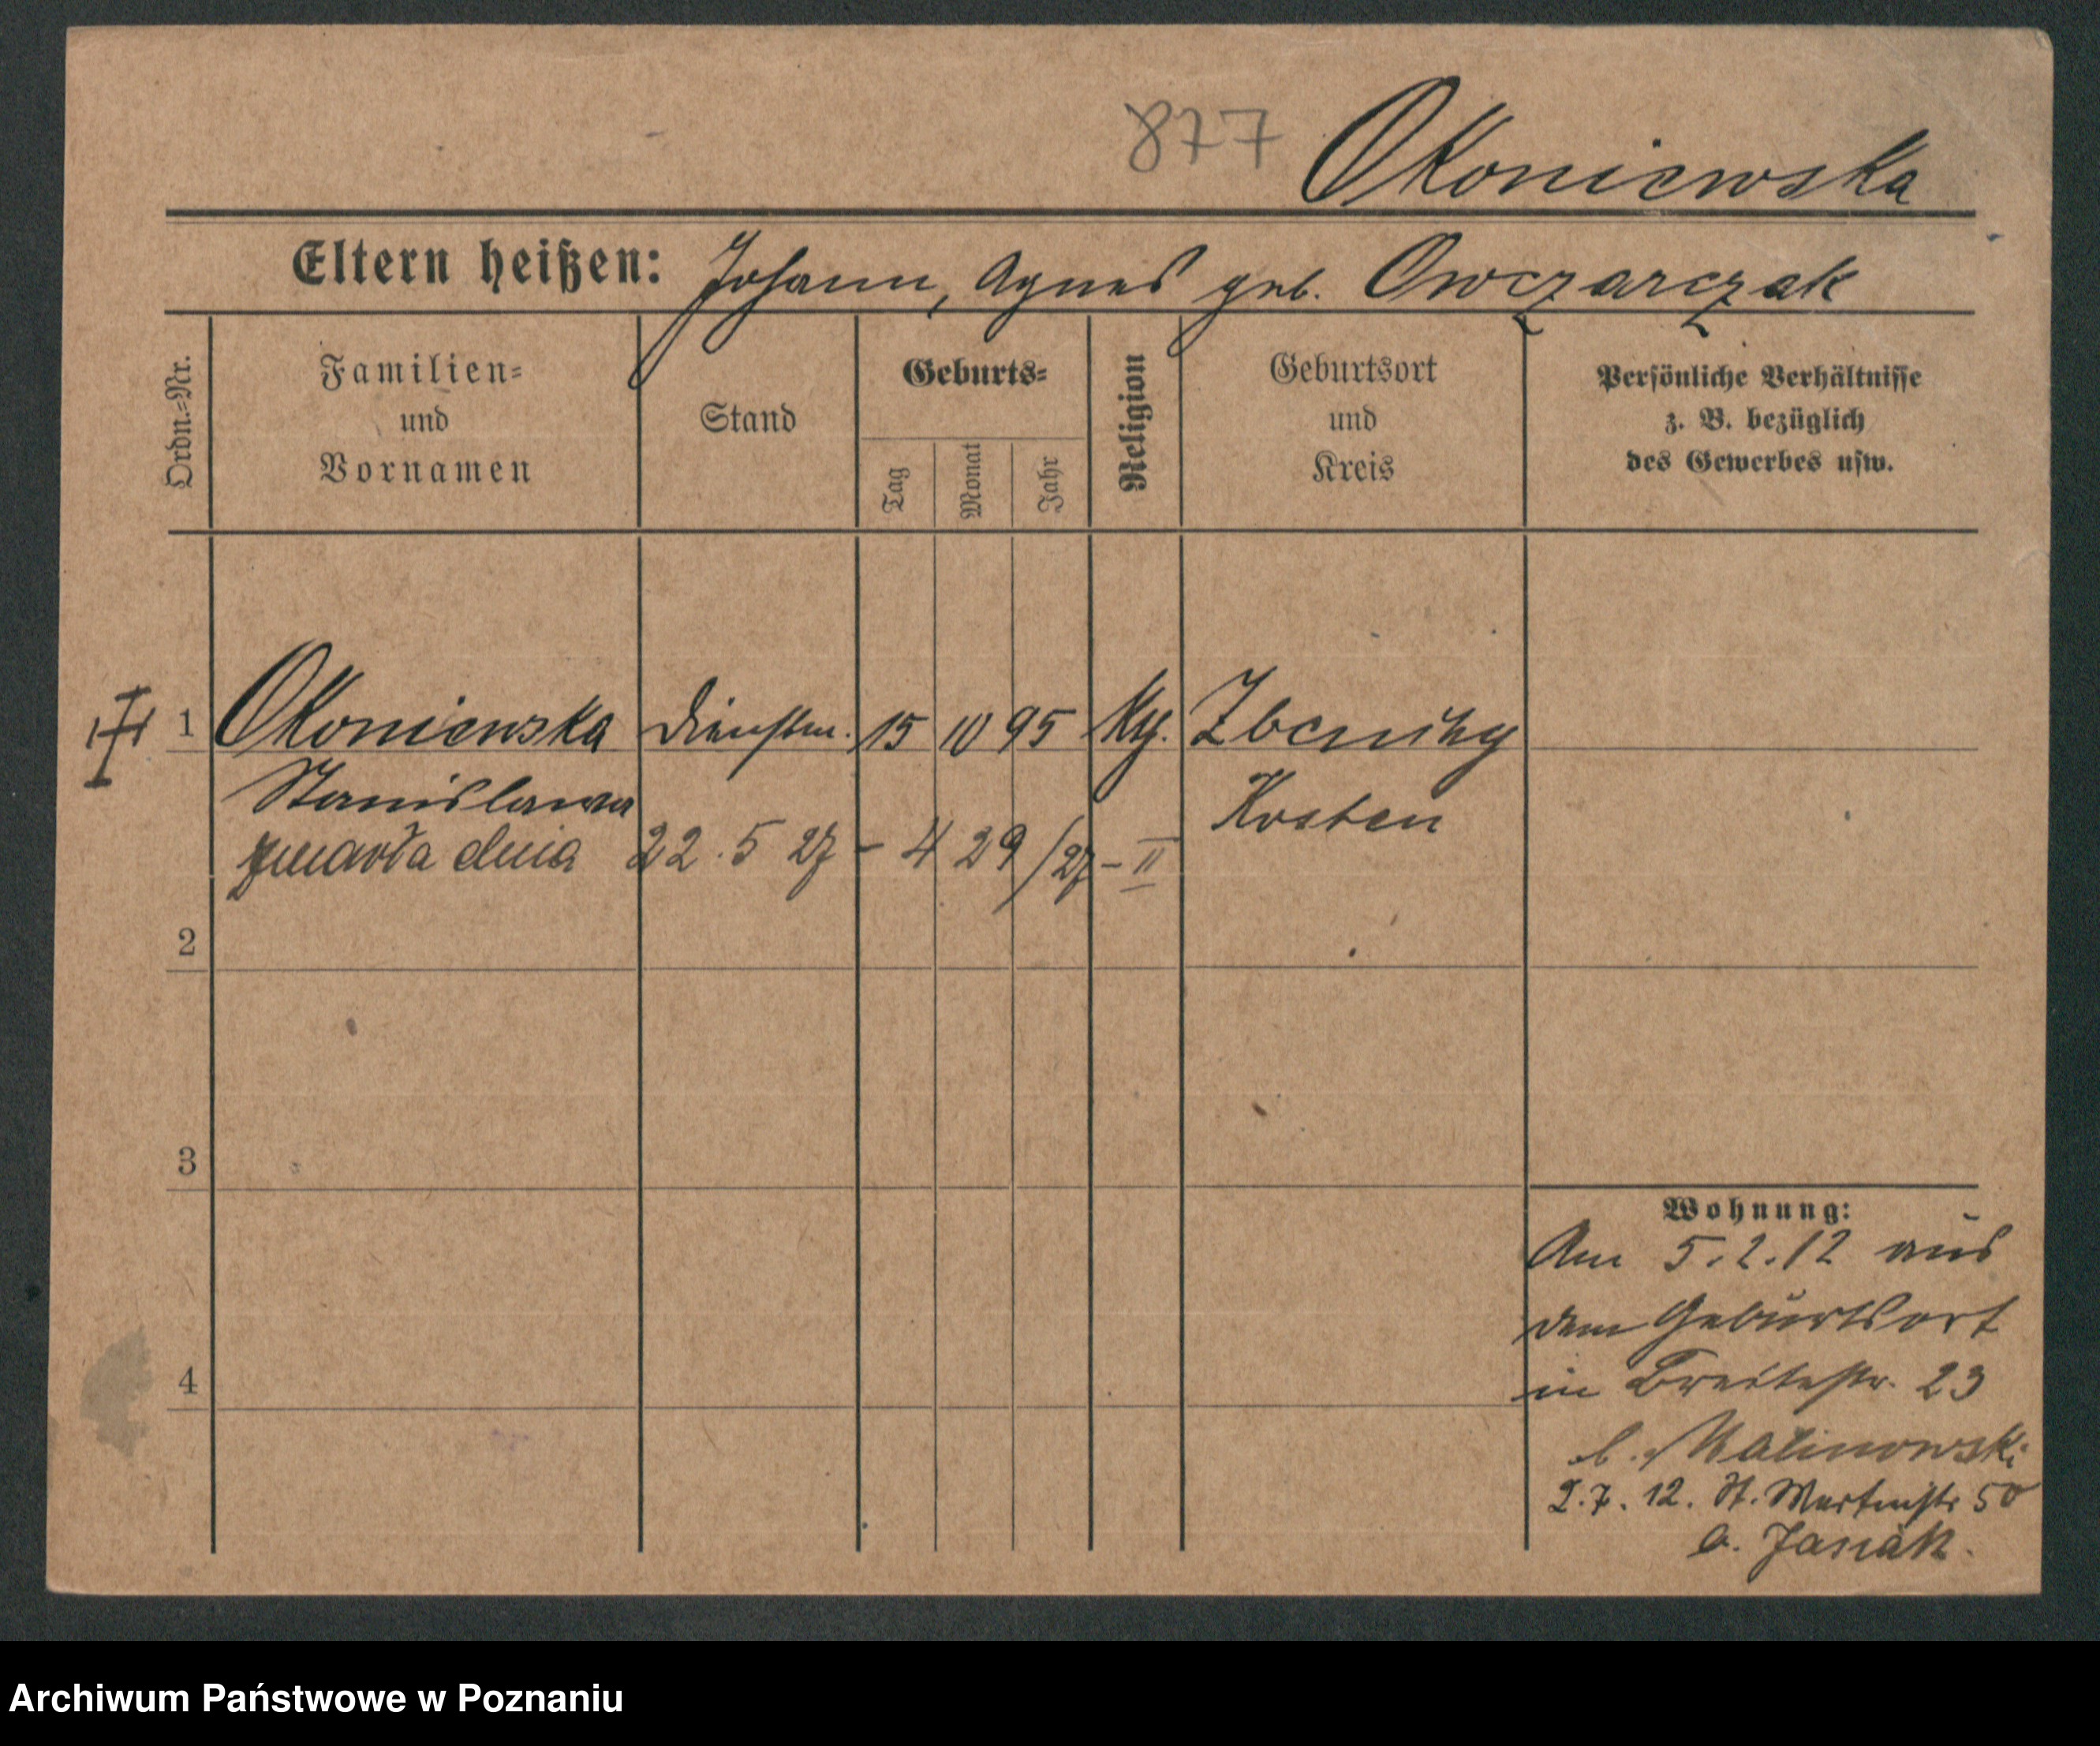 877 Okoniewska
Eltern heißen: Johann, Agnes geb. Owczarczak
Ordn.=Nr.
Familien=
und
Vornamen
Stand
Geburts=
Tag
Monat
Jahr
Religion
Geburtsort
und
Kreis
Persönliche Verhältnisse
z. B. bezüglich
des Gewerbes usw.
1 Okoniewska Dienstm. 15 10 95 kth.
Stanislawa Kosten
zmarła dnia 22. 5 27 – 4 29/27 – II
2
3
4
Wohnung:
Am 5.2.12 aus
dem Geburtsort
in Breitestr. 23
b. Malinowski
2.7.12. St. Martinstr 50
b. Jasiak.
Archiwum Państwowe w Poznaniu